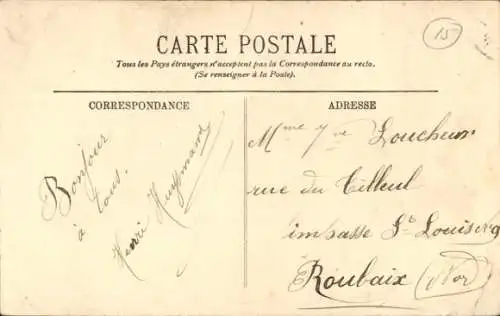 15
CARTE POSTALE
Tous les Pays étrangers n'acceptent pas la Correspondance au recto.
(Se renseigner à la Poste).
CORRESPONDANCE
ADRESSE
Bonjour
à tous.
Henri Huysmans
Mme Vve Loucheur
rue du Tilleul
impasse St Louis 9
Roubaix (Nor)